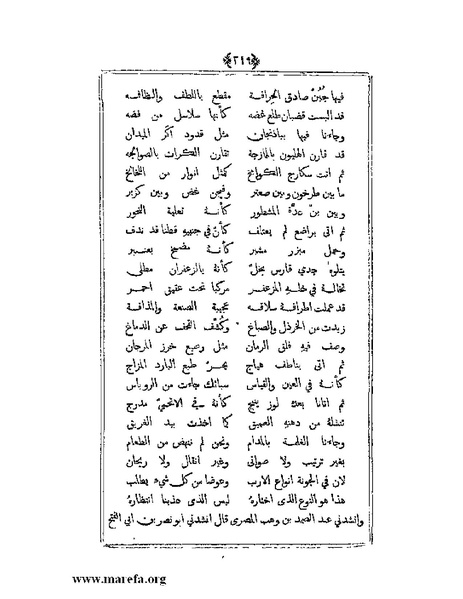 ﴿٢٤٩﴾
فيها جُبُنّ صادق الحرافة مقطع باللطف والنظافه
قد البست قضبان طلع غضه كأنها سلاسل من فضه
وجاءنا فيها بباذنجان مثل قدود آكر الميدان
قد قارن الهليون بالمازجة تقارن الكرات بالصوالجه
ثم اتت سكارج الكوامخ كمثل انوار من اللخالخ
ما بين طرخون وبين صعتر وفيجن غض وبين كزبر
وبين بنّ عدّة المشطور كأنه تعلية النحور
ثم اتى براضع لم يعتلف كأنّ في جنبيه قطنا قد ندف
وحمل مبزر مشبر كأنه مضمخ بعنبر
يتلوه جدي فارس بخلّ كأنه بالزعفران مطلي
تخاله في المزعفر مركبا تحت عقيق احمر
قد عملت اطرافه سلاقه عجيبة الصنعة والمذاقة
زيدت من الخردل والصباغ وكُشّف القحف عن الدماغ
وصف فيه فلق الرمان مثل رصيع خرز المرجان
ثم اتى بناطف هياج طبع البارد المزاج
كأنه في العين والقياس سبائك جاءت من الروباس
ثم اتانا بعده لوزينج كأنه في مدرج
تنتشله من دهنه العميق كما اخذت بيد الغريق
وجاءنا الغلمة بالمدام ونحن لم ننهض من الطعام
بغير ترتيب ولا صواني وغير انقال ولا ريحان
لان في الجونة انواع الارب وعوضا من كل شيء يطلب
هذا هو النوع الذي اختاره ليس الذي عذبنا انتظاره
وانشدني عبد الصمد بن وهب المصري قال انشدني ابو نصر بن ابي الفتح
www.marefa.org